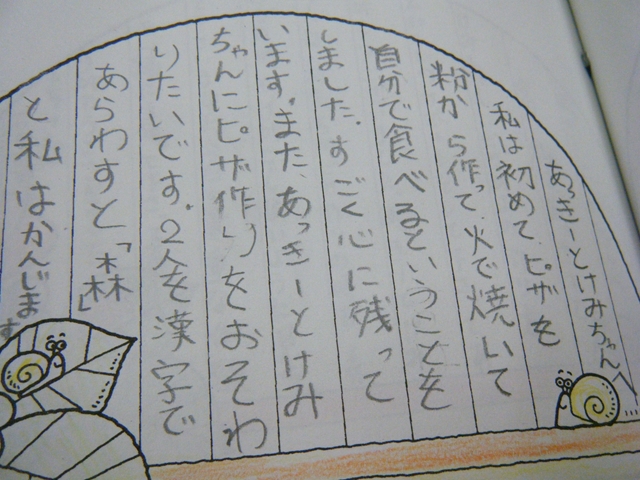 あっきーとけみちゃんへ
私は初めて、ピザを
粉から作って、火で焼いて
自分で食べるということを
しました。すごく心に残って
います。また、あっきーとけみ
ちゃんにピザ作りをおそわ
りたいです。2人を漢字で
あらわすと「森」
と私はかんじます